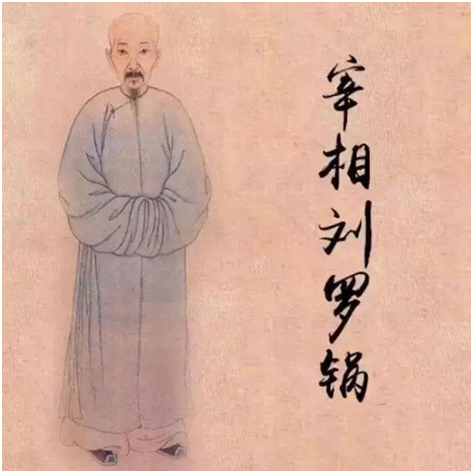 宰相刘罗锅